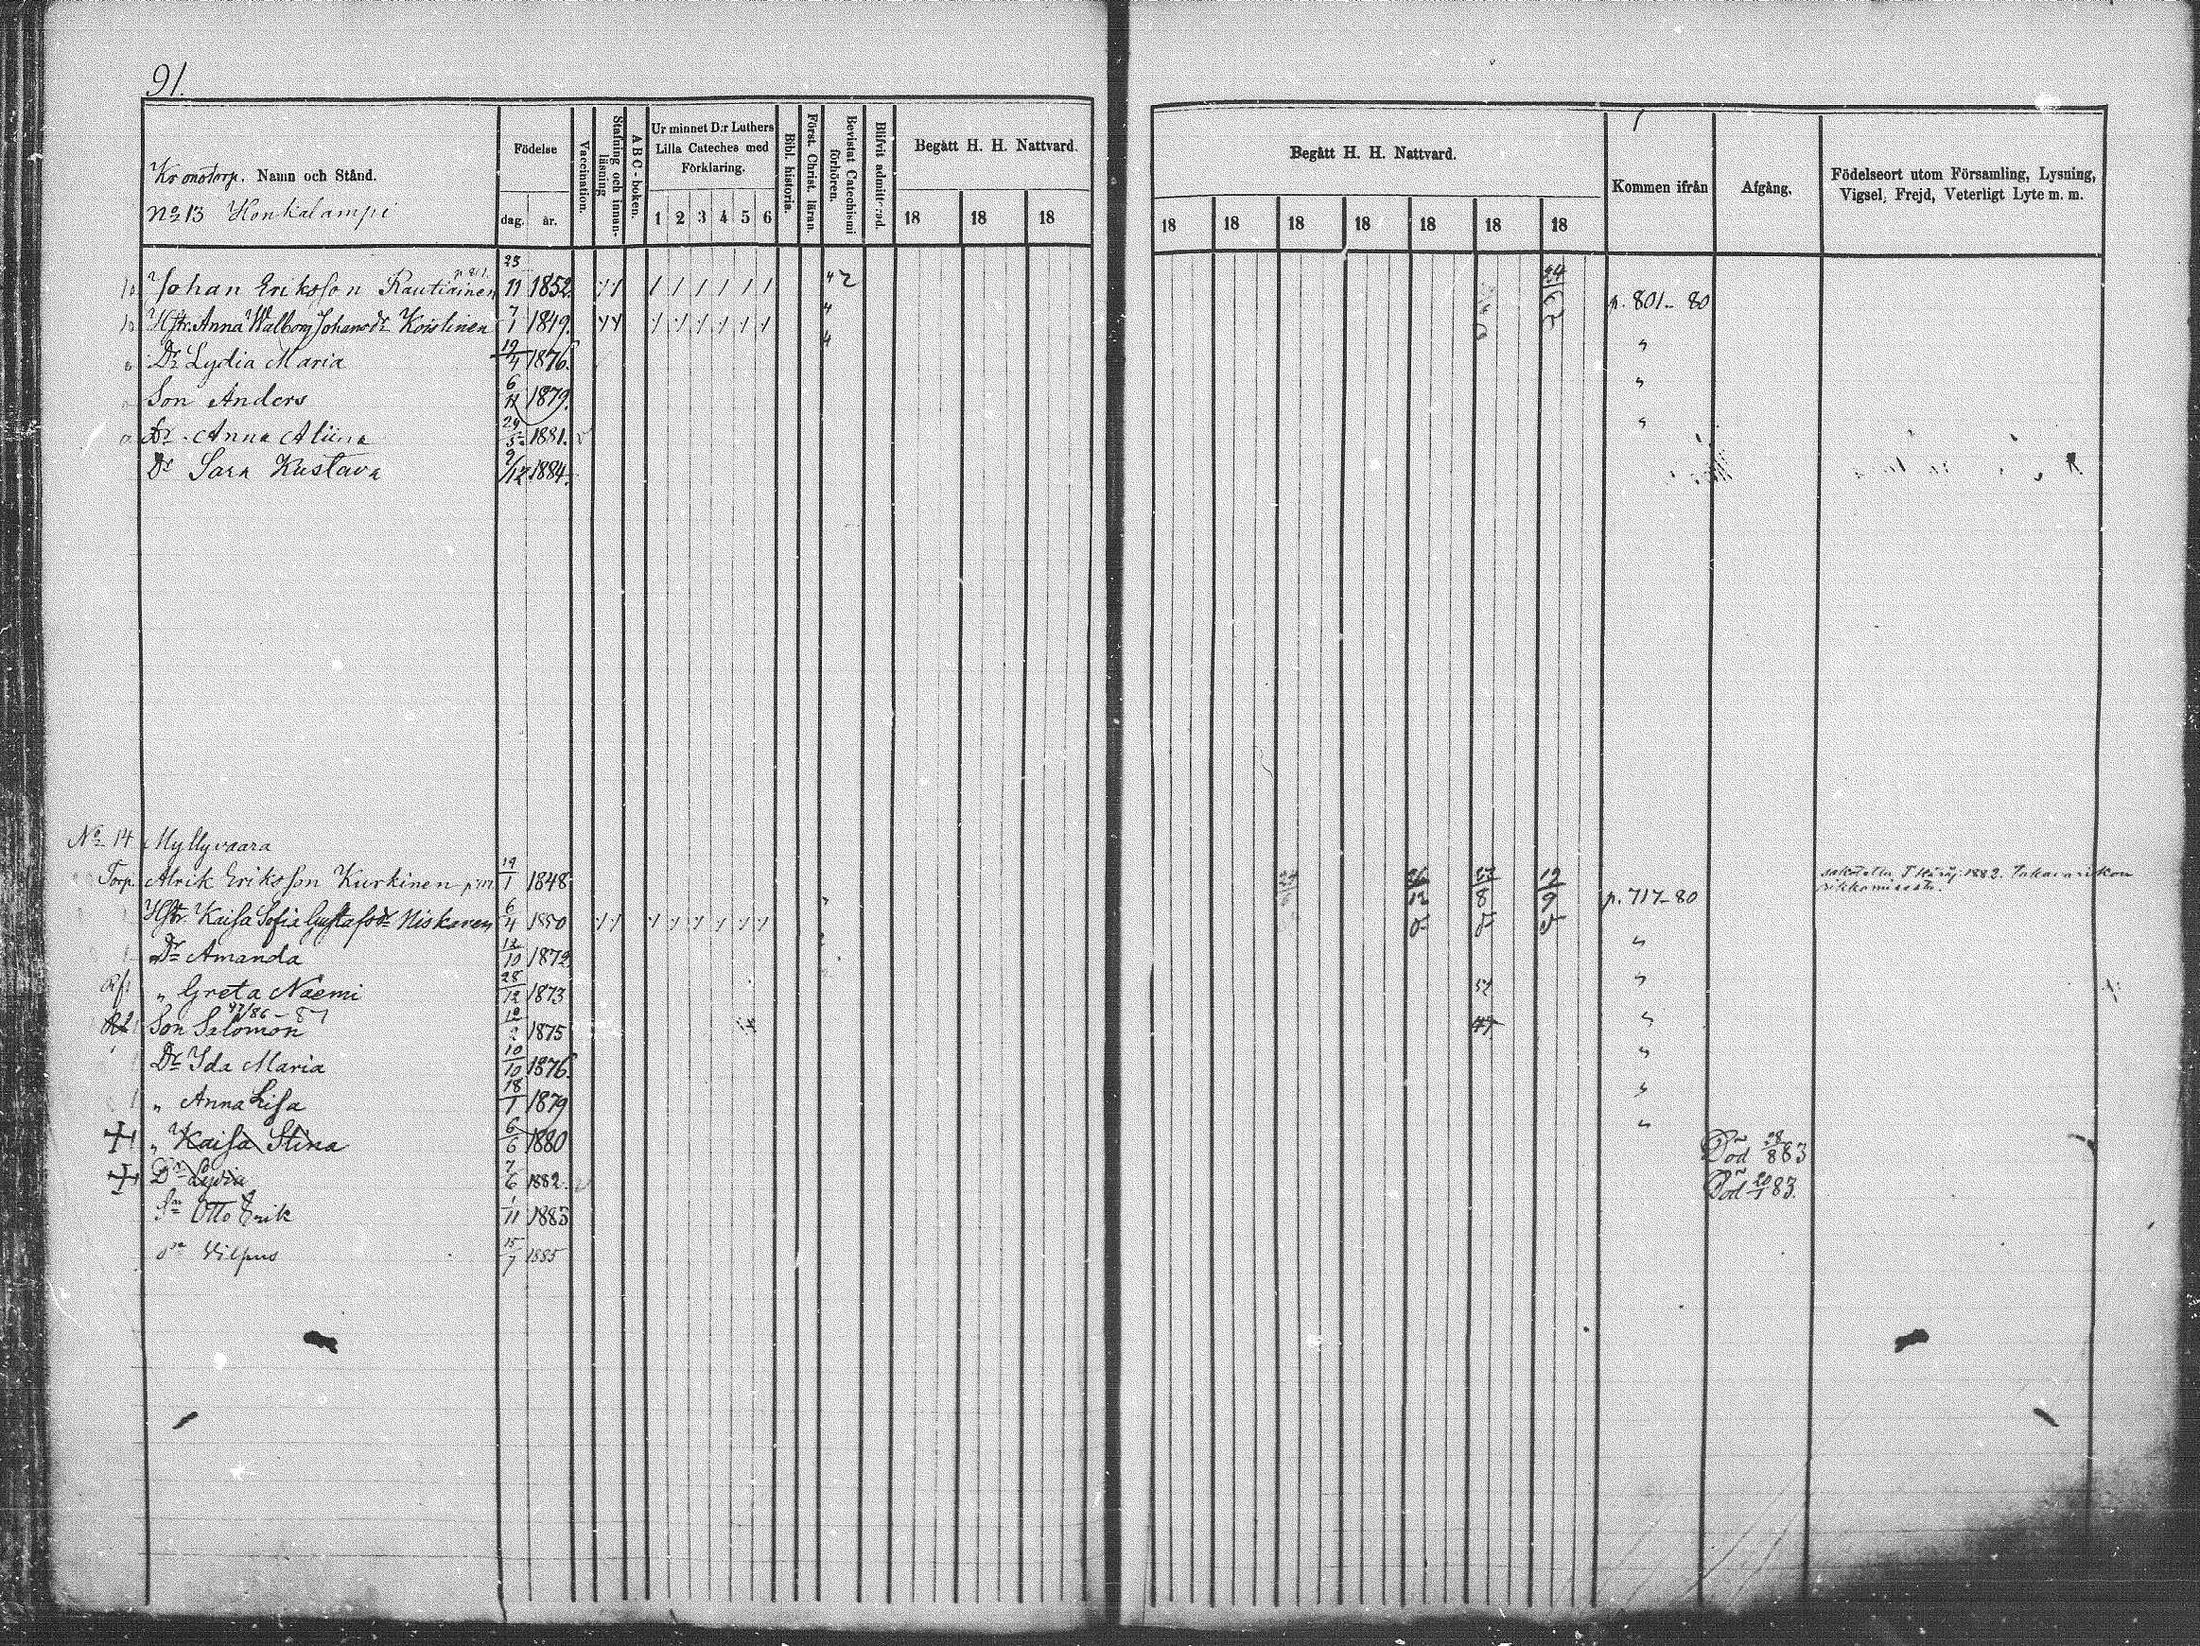 91.
Kronotorp. Namn och Stånd.
No 13 Honkalampi
Födelse
dag. år.
Vaccination.
Stafning och innan-läsning
ABC-boken.
Ur minnet D:r Luthers
Lilla Cateches med
Förklaring.
1 2 3 4 5 6
Bibl. historia.
Först. Christ. läran.
Bevistat Catechismi förhören.
Blifvit admitterad.
Begått H. H. Nattvard.
18 18 18
Begått H. H. Nattvard.
18 18 18 18 18 18 18
Kommen ifrån
Afgång.
Födelseort utom Församling, Lysning,
Vigsel, Frejd, Veterligt Lyte m. m.
Johan Eriksson Rautiainen 23/11 1852 p. 801-80
Hstr. Anna Walborg Johansdr Koistinen 7/1 1849 "
Dr Lydia Maria 19/4 1876 "
Son Anders 6/11 1879 "
Dr Anna Aliina 29/5 1881
Dr Sara Kustava 9/12 1884
No 14 Myllyvaara
Torp. Alrik Eriksson Kurkinen 19/1 1848 p. 717-80
Hstr. Kaisa Sofia Gustafsdr Niskanen 6/4 1850 "
Dr Amanda 12/10 1872 "
" Greta Naemi 28/12 1873 "
47/86-87
Son Salomon 12/2 1875 "
Dr Ida Maria 10/10 1876 "
" Anna Lisa 18/1 1879 "
" Kaisa Stina 6/6 1880 Död 28/8 83
Dr Lydia 7/6 1882 Död 20/1 83.
Sn Otto Erik 1/11 1883
Sn Vilpus 15/7 1885